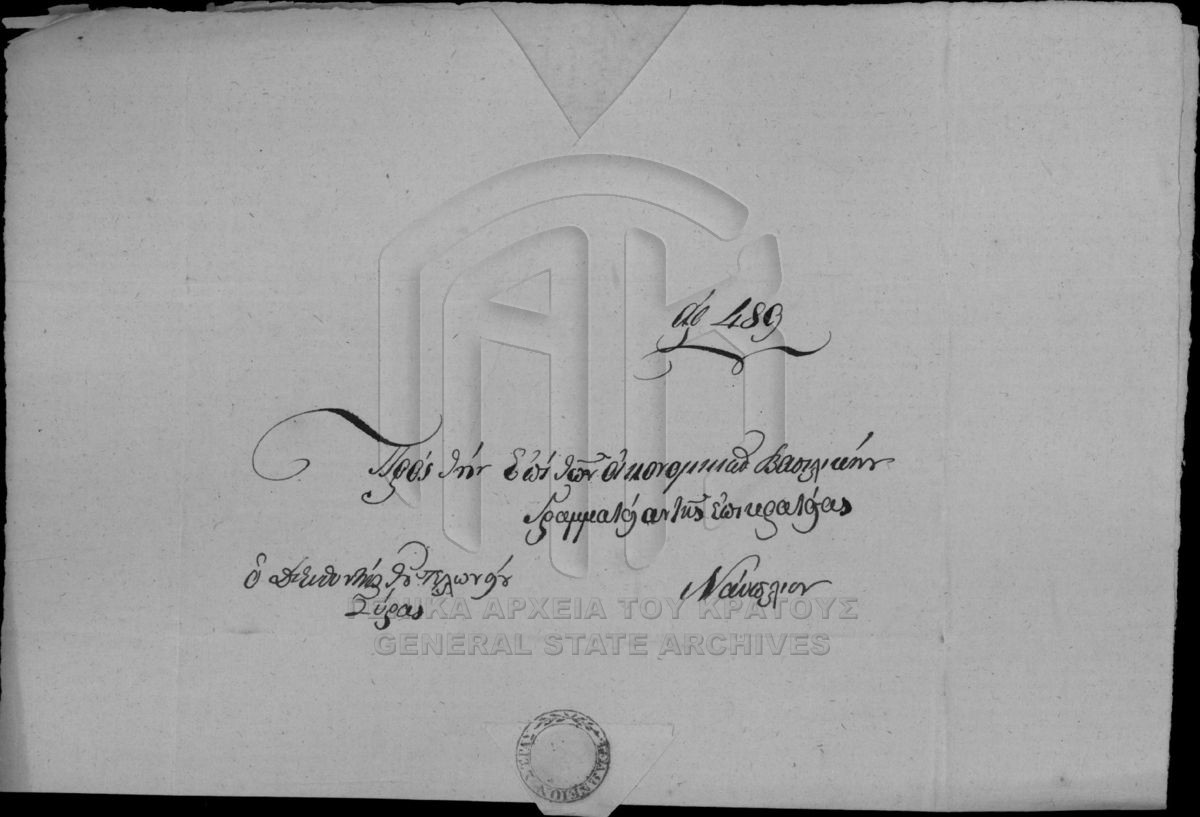 ἀρ 489
Πρός τὴν ἐπὶ τῶν οἰκονομικῶν Βασιλικὴν
Γραμματείαν τῆς ἐπικρατείας
ὁ Διευθυντὴς τοῦ τελωνείου
Σύρας
Ναύπλιον
ΓΕΝΙΚΑ ΑΡΧΕΙΑ ΤΟΥ ΚΡΑΤΟΥΣ
GENERAL STATE ARCHIVES